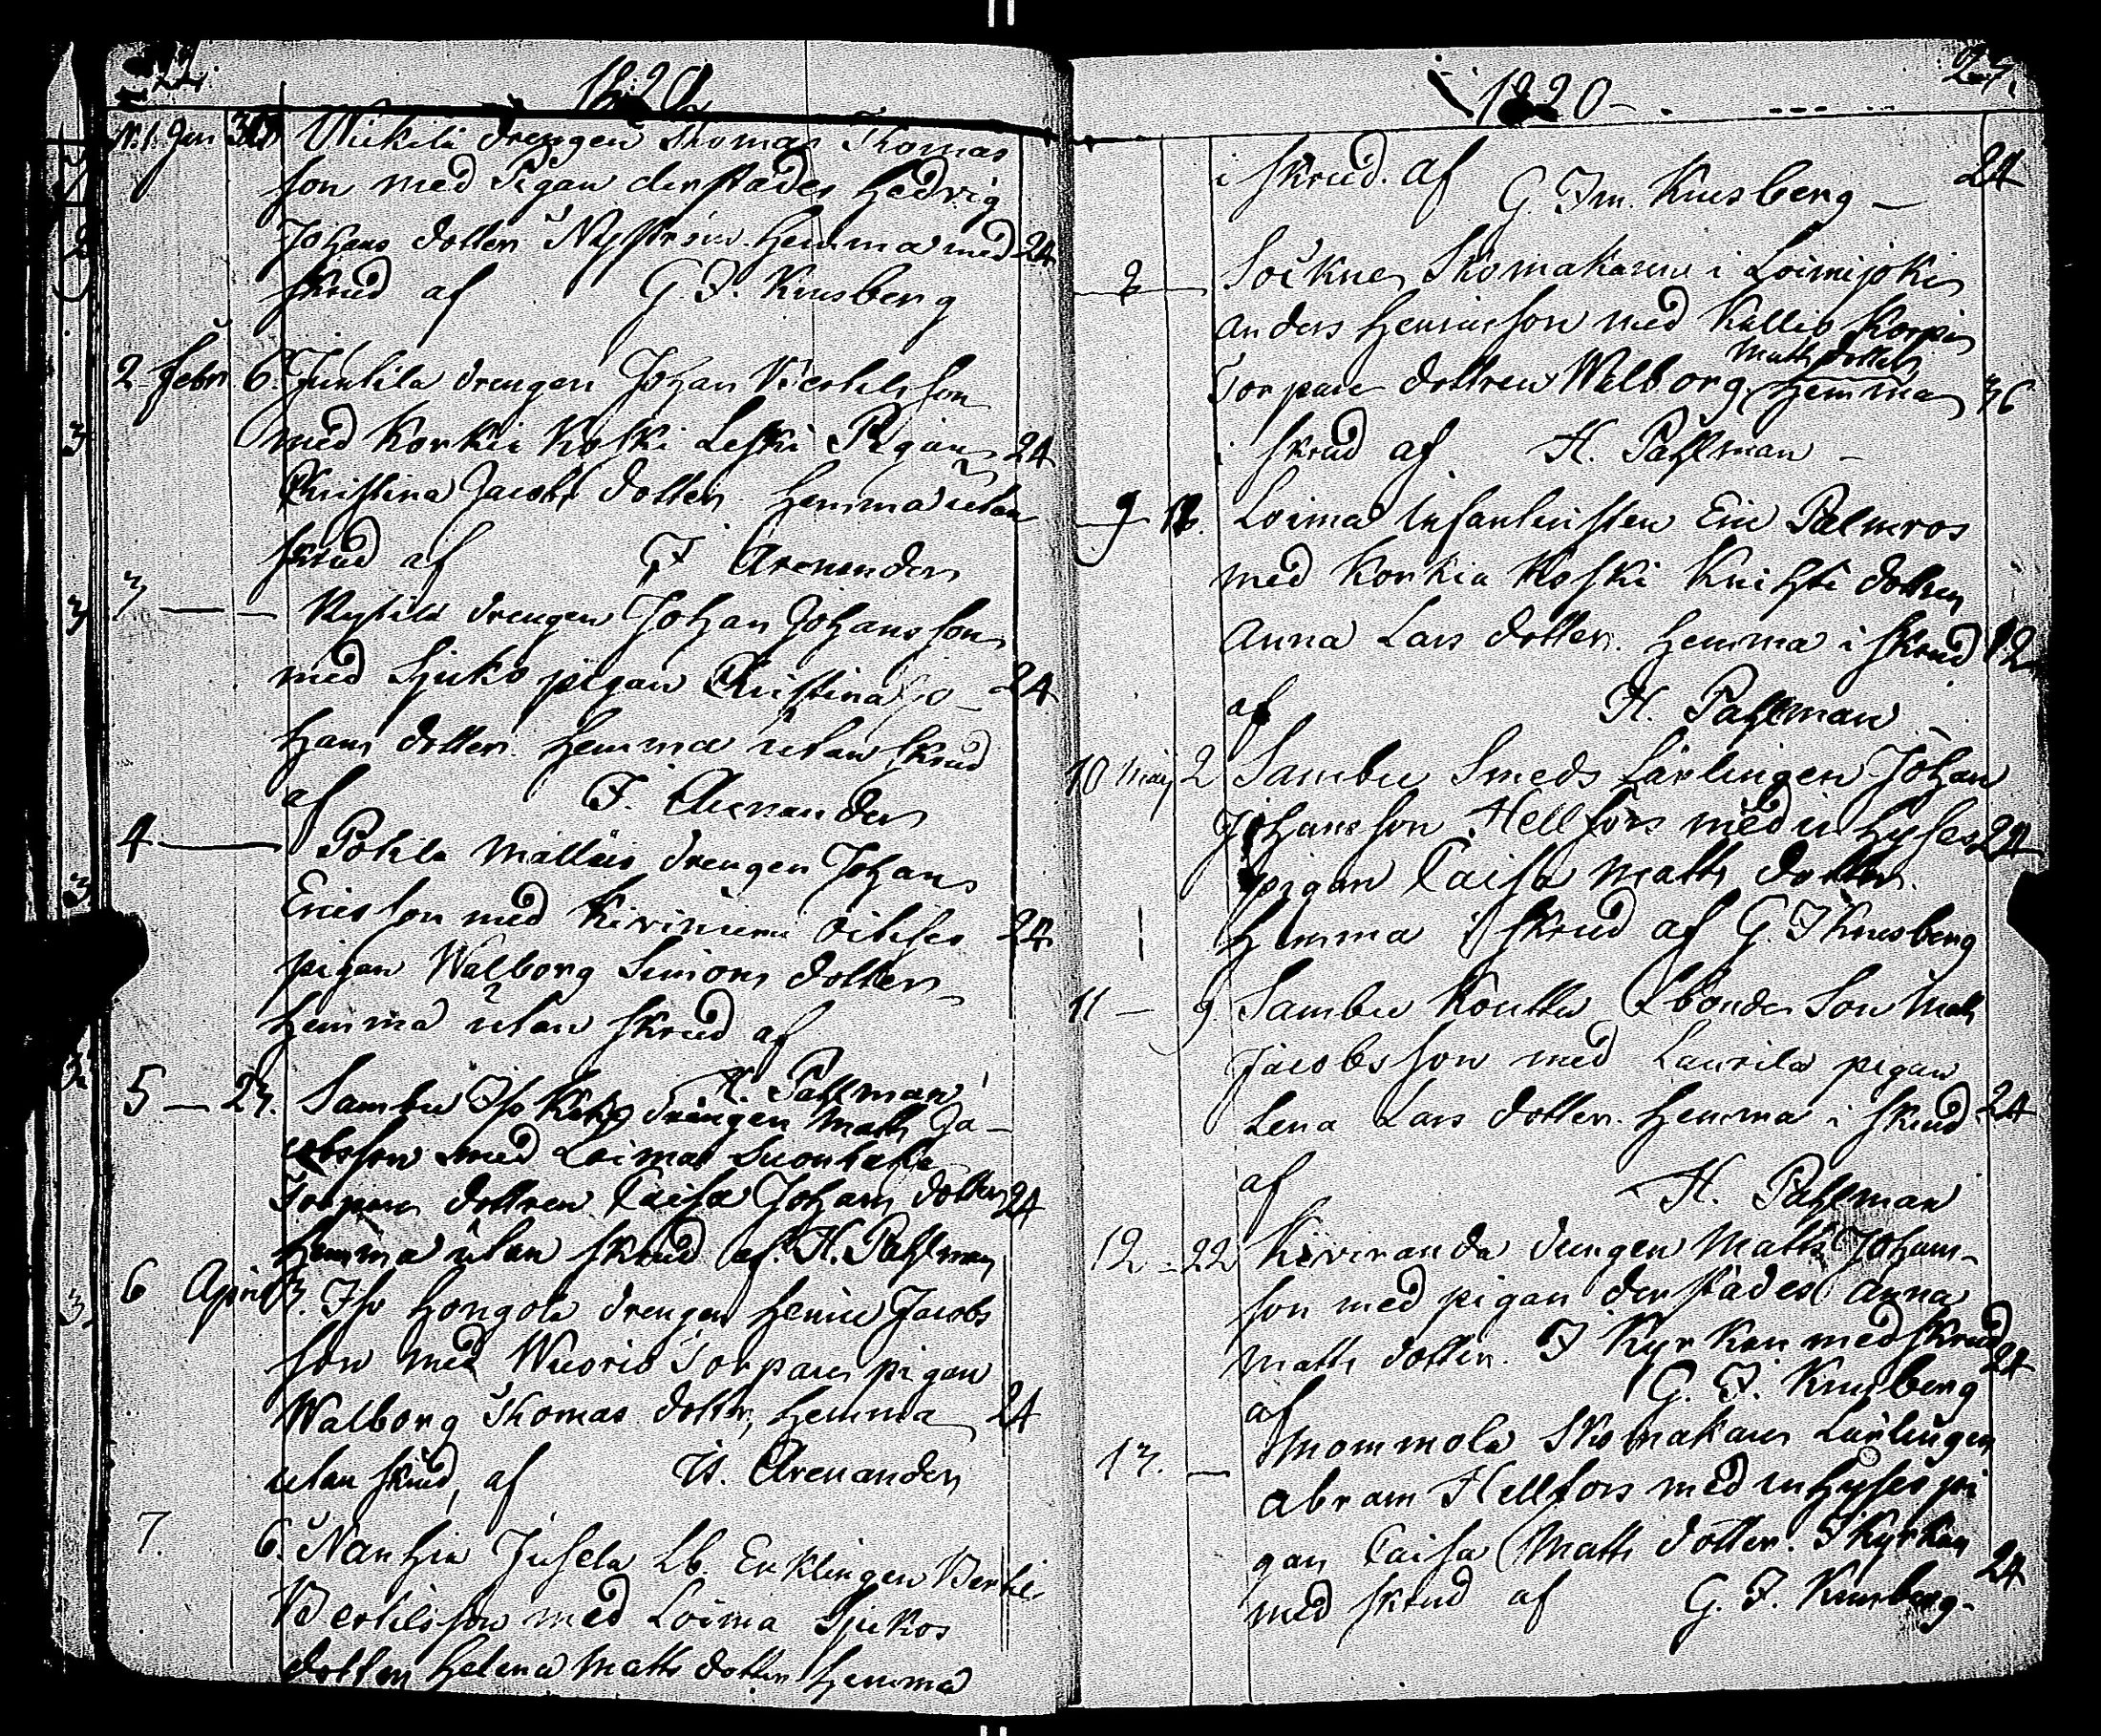 22.
1820
N. 1. Jan 30 Wickila drengen Thomas Thomas
son med Pigan derstädes Hedvig
Johans dotter Nyström. hemma med 24
skrud af G. I. Krusberg
2 Febr. 6. Junkila drengen Johan Bertils son
med Korkia Koski Leski Pigan 24
Christina Jacobs dotter hemma utan
skrud af F Arenander
3 — — Kytilä drengen Johan Johans son
med Sjuko pigan Christina Jo- 24
hans dotter. hemma utan skrud
af F. Arenander
4 — Pohila drengen Johan
Ericsson med Kiviniemi pigan 24
pigan Walborg Simons dotter
hemma utan skrud af
H. Pahlman
5 — 27. Sambu Iso drengen Matts Ja-
cobsson med Loima
Torpare dottren Caisa Johans dotter 24
hemma utan skrud af. H. Pahlman
6 April 3. Iso Hongola drengen Henric Jacobs
son med Wuorio Torpare pigan
Walborg Thomas dotter, hemma 24
utan skrud, af Arenander
7. 6. Nanhia Jusela Lb. Enklingen Bertil
Bertilsson med Loima Sjukos
dotter Helena Matts dotter hemma
1820 — 23.
i skrud. af G. Im. Krusberg — 24
8 Sockne Skomakaren i Loimijoki
Anders Henricsson med Kallio Korpi
Matts dotter
Torpare dottren Walborg, hemma 36
i skrud af H. Pahlman —
9 Loima Infanteristen Eric Palmros
med Korkia Koski Knihti dottren
Anna Lars dotter. hemma i skrud 12
af H. Pahlman
10 Maj 2 Sambu Smeds Lärlingen Johan
Johansson Hellfors med inhyses 24
pigan Caisa Matts dotter.
hemma i skrud af G. I Krusberg
11 — 9 Sambu Konttu Lbonde Son Matts
Jacobsson med Laurila pigan
Lena Lars dotter. hemma i skrud 24
af H. Pahlman
12 — 22 Kiviranda drengen Matts Johans-
son med pigan derstädes Anna
Matts dotter. I Kyrkan med skrud 24
af G. I. Krusberg
13. — Mommola Skomakare Lärlingen
Abram Hellfors med inhyses pi
gan Caisa Matts dotter. I Kyrkan
med skrud af G. I. Krusberg. 24